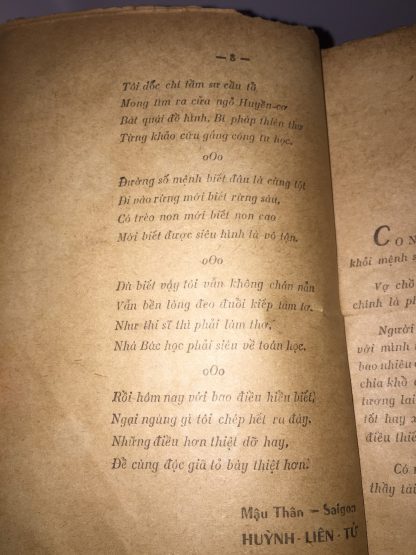 — 8 —
Tôi dốc chí tầm sư cầu tổ,
Mong tìm ra cửa ngõ Huyền-cơ
Bát quái đồ hình, Bí pháp thiên thơ
Từng khảo cứu gắng công tu học.
oOo
Đường số mệnh biết đâu là cùng tột
Đi vào rừng mới biết rừng sâu,
Có trèo non mới biết non cao
Mới biết được siêu hình là vô tận.
oOo
Dù biết vậy tôi vẫn không chán nản
Vẫn bền lòng đeo đuổi kiếp tằm tơ.
Như thi sĩ thì phải làm thơ,
Nhà Bác học phải siêu về toán học.
oOo
Rồi hôm nay với bao điều hiểu biết,
Ngại ngùng gì tôi chép hết ra đây,
Những điều hơn thiệt dở hay,
Để cùng độc giả tỏ bày thiệt hơn.
Mậu Thân — Saigon
HUỲNH - LIÊN - TỬ
CON
khỏi mệnh s
Vợ chồ
chính là ph
Người
với mình
bao nhiêu
chìa khó
tương lai
tốt hay x
điều thiế
Có
thầy tài